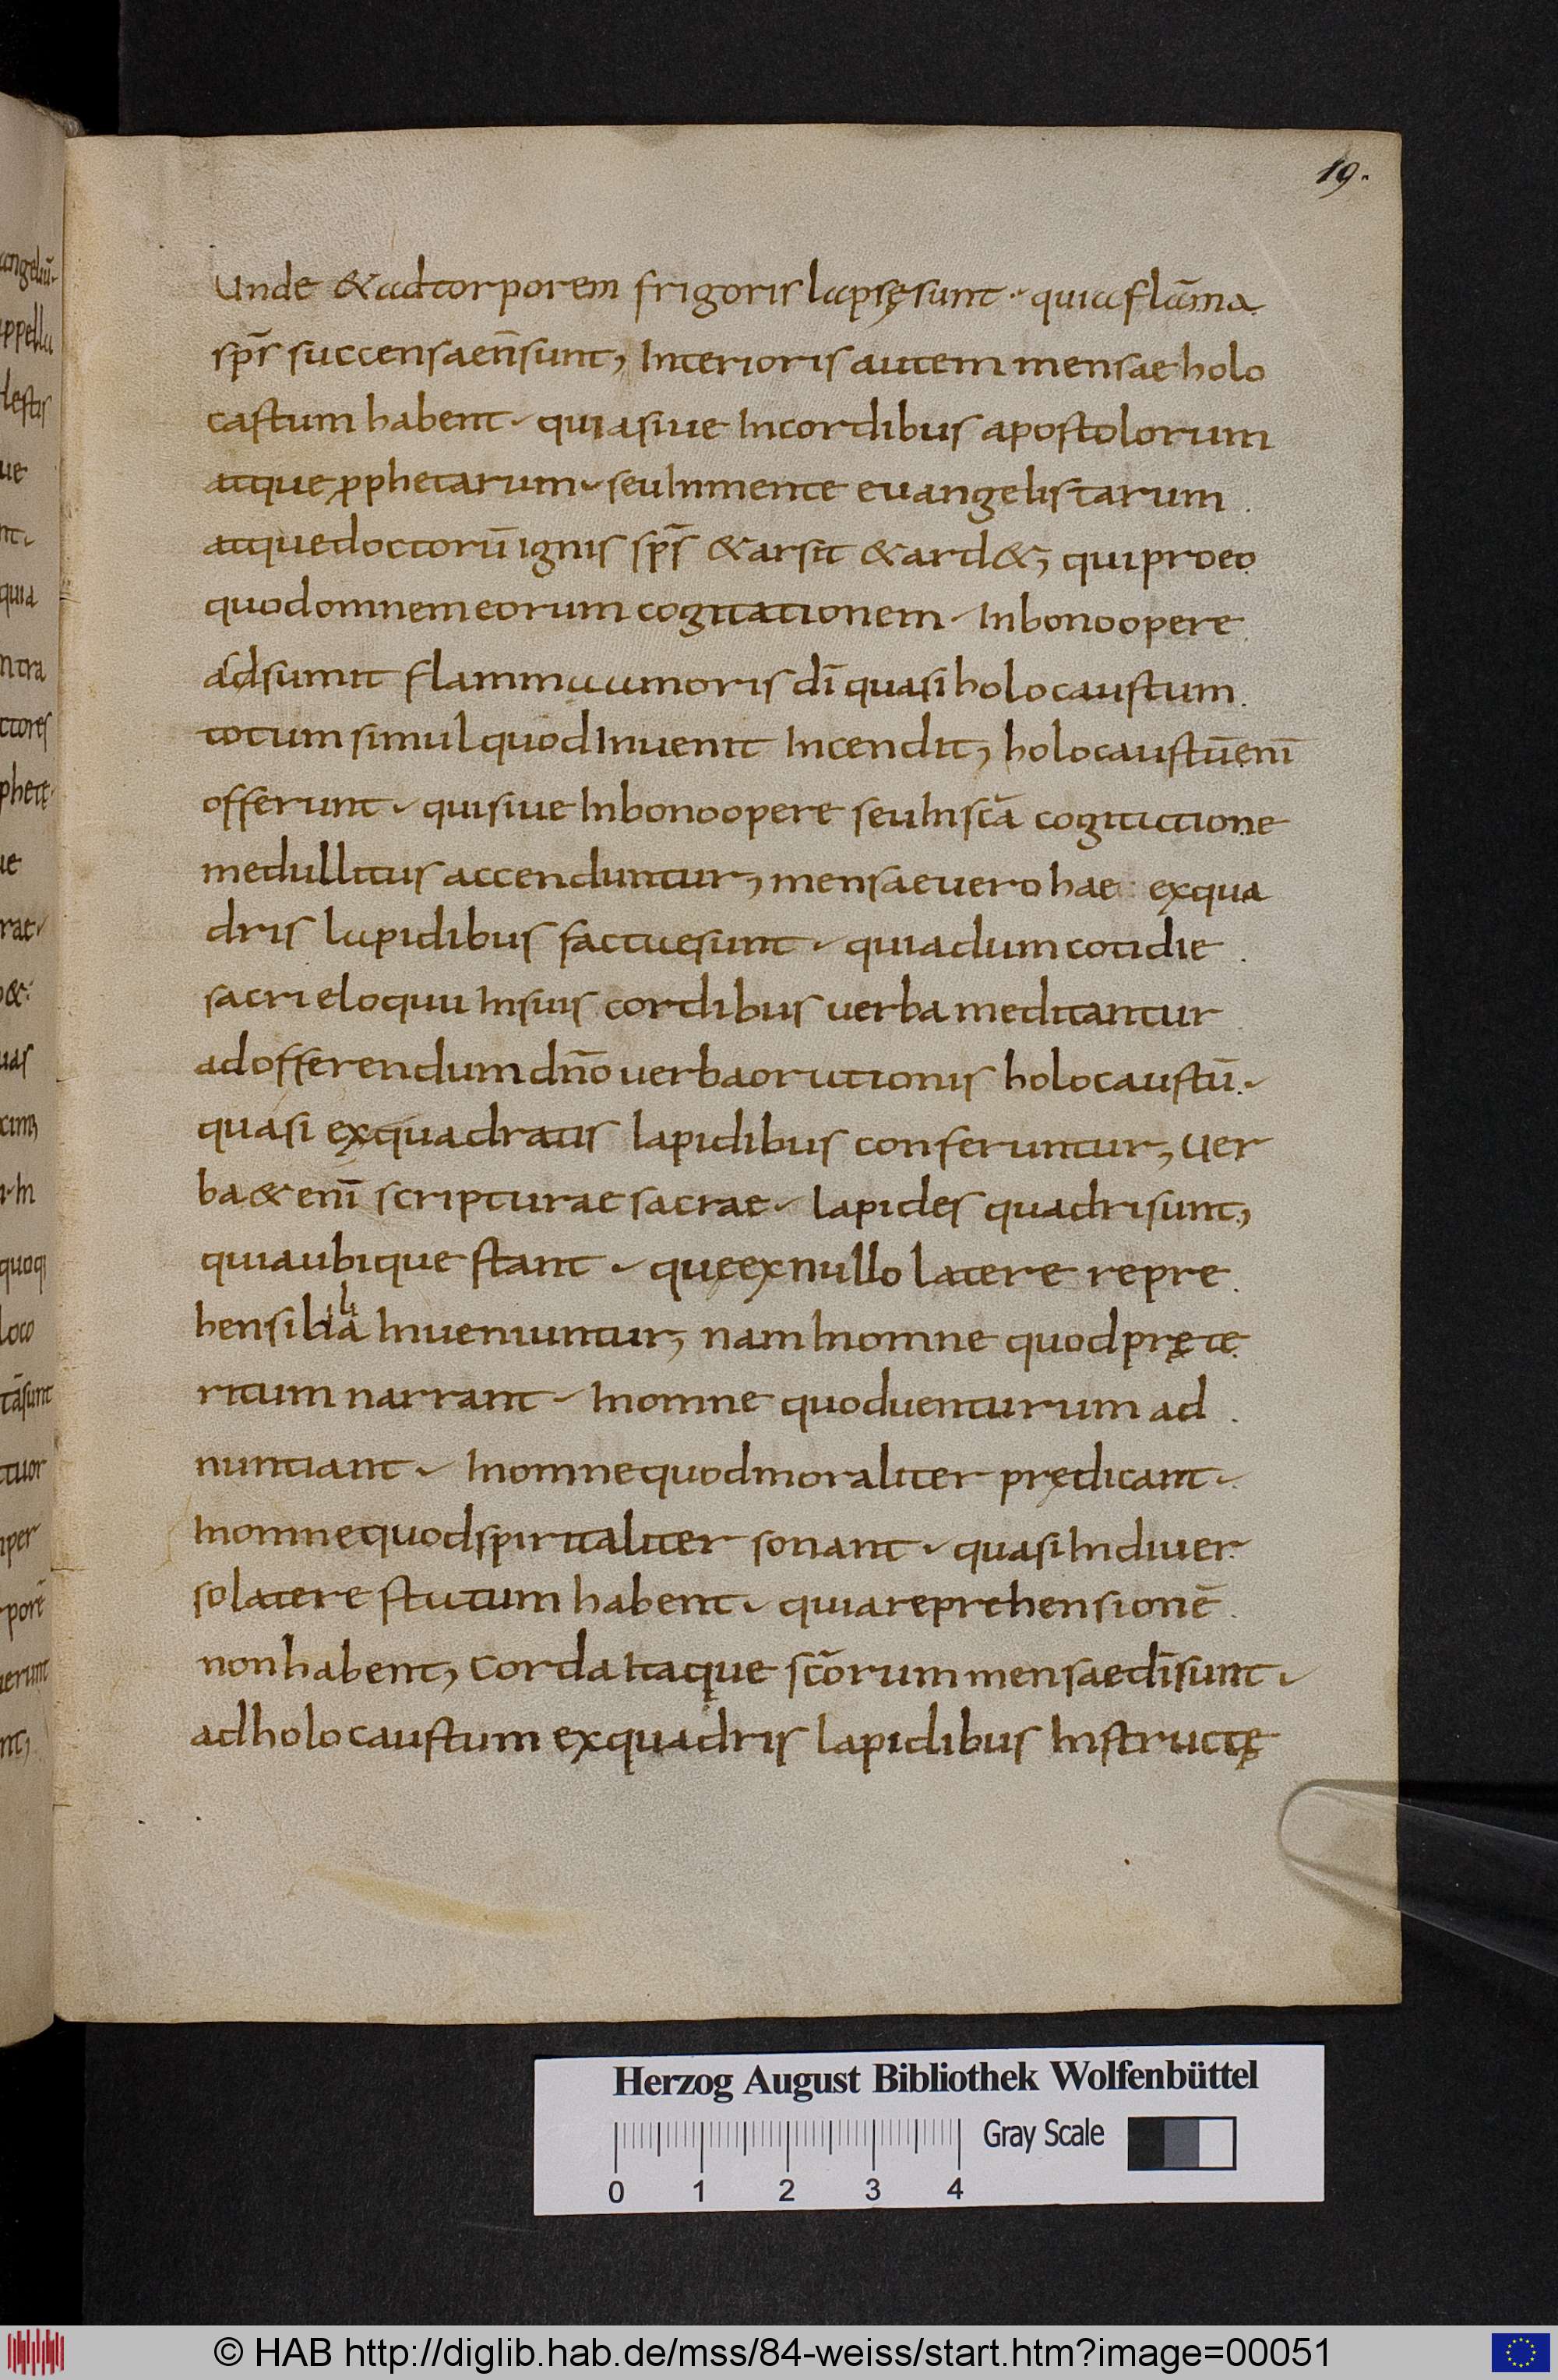 19.
Unde & ad torporem frigoris lapsę sunt · quia flāma
sp̄s succensae n̄ sunt, Interioris autem mensae holo
castum habent · quia siue In cordibus apostolorum
atque ꝓphetarum · seu In mente euangelistarum
atque doctorū ignis sp̄s & arsit & ard&, qui pro eo
quod omnem eorum cogitationem · In bono opere
adsumit flamma amoris dī quasi holocaustum
totum simul quod Inuenit Incendit, holocaustū enī
offerunt · qui siue In bono opere seu In scā cogitatione
medullitus accenduntur, mensae uero hae ex qua
dris lapidibus factae sunt · quia dum cotidie
sacri eloquii In suis cordibus uerba meditantur
ad offerendum dn̄o uerba orationis holocaustū ·
quasi ex quadratis lapidibus conferuntur, Uer
ba & enī scripturae sacrae · lapides quadri sunt,
quia ubique stant · quę ex nullo latere repre
hensibilia Inueniuntur, nam In omne quod pręte
ritum narrant · In omne quod uenturum ad
nuntiant · In omne quod moraliter prędicant ·
In omne quod spiritaliter sonant · quasi In diuer
so latere statum habent · quia reprehensionē
non habent, Corda Itaque scōrum mensae dī sunt ·
ad holocaustum ex quadris lapidibus Instructę
Herzog August Bibliothek Wolfenbüttel
Gray Scale
0 1 2 3 4
© HAB http://diglib.hab.de/mss/84-weiss/start.htm?image=00051